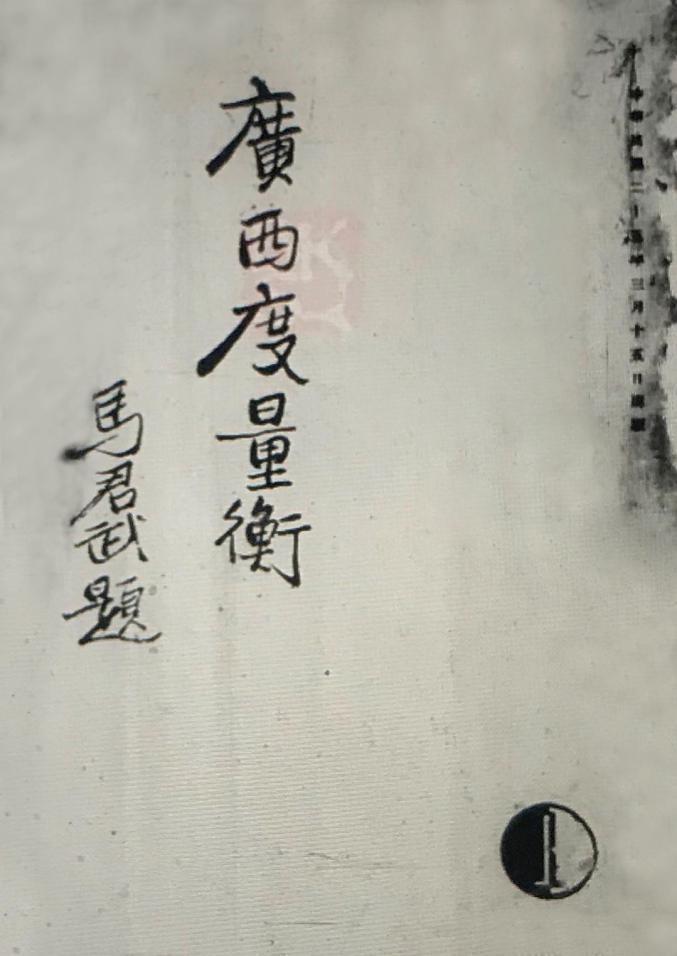 中華民國二十五年三月十五日出版
廣西度量衡
馬君武題
1